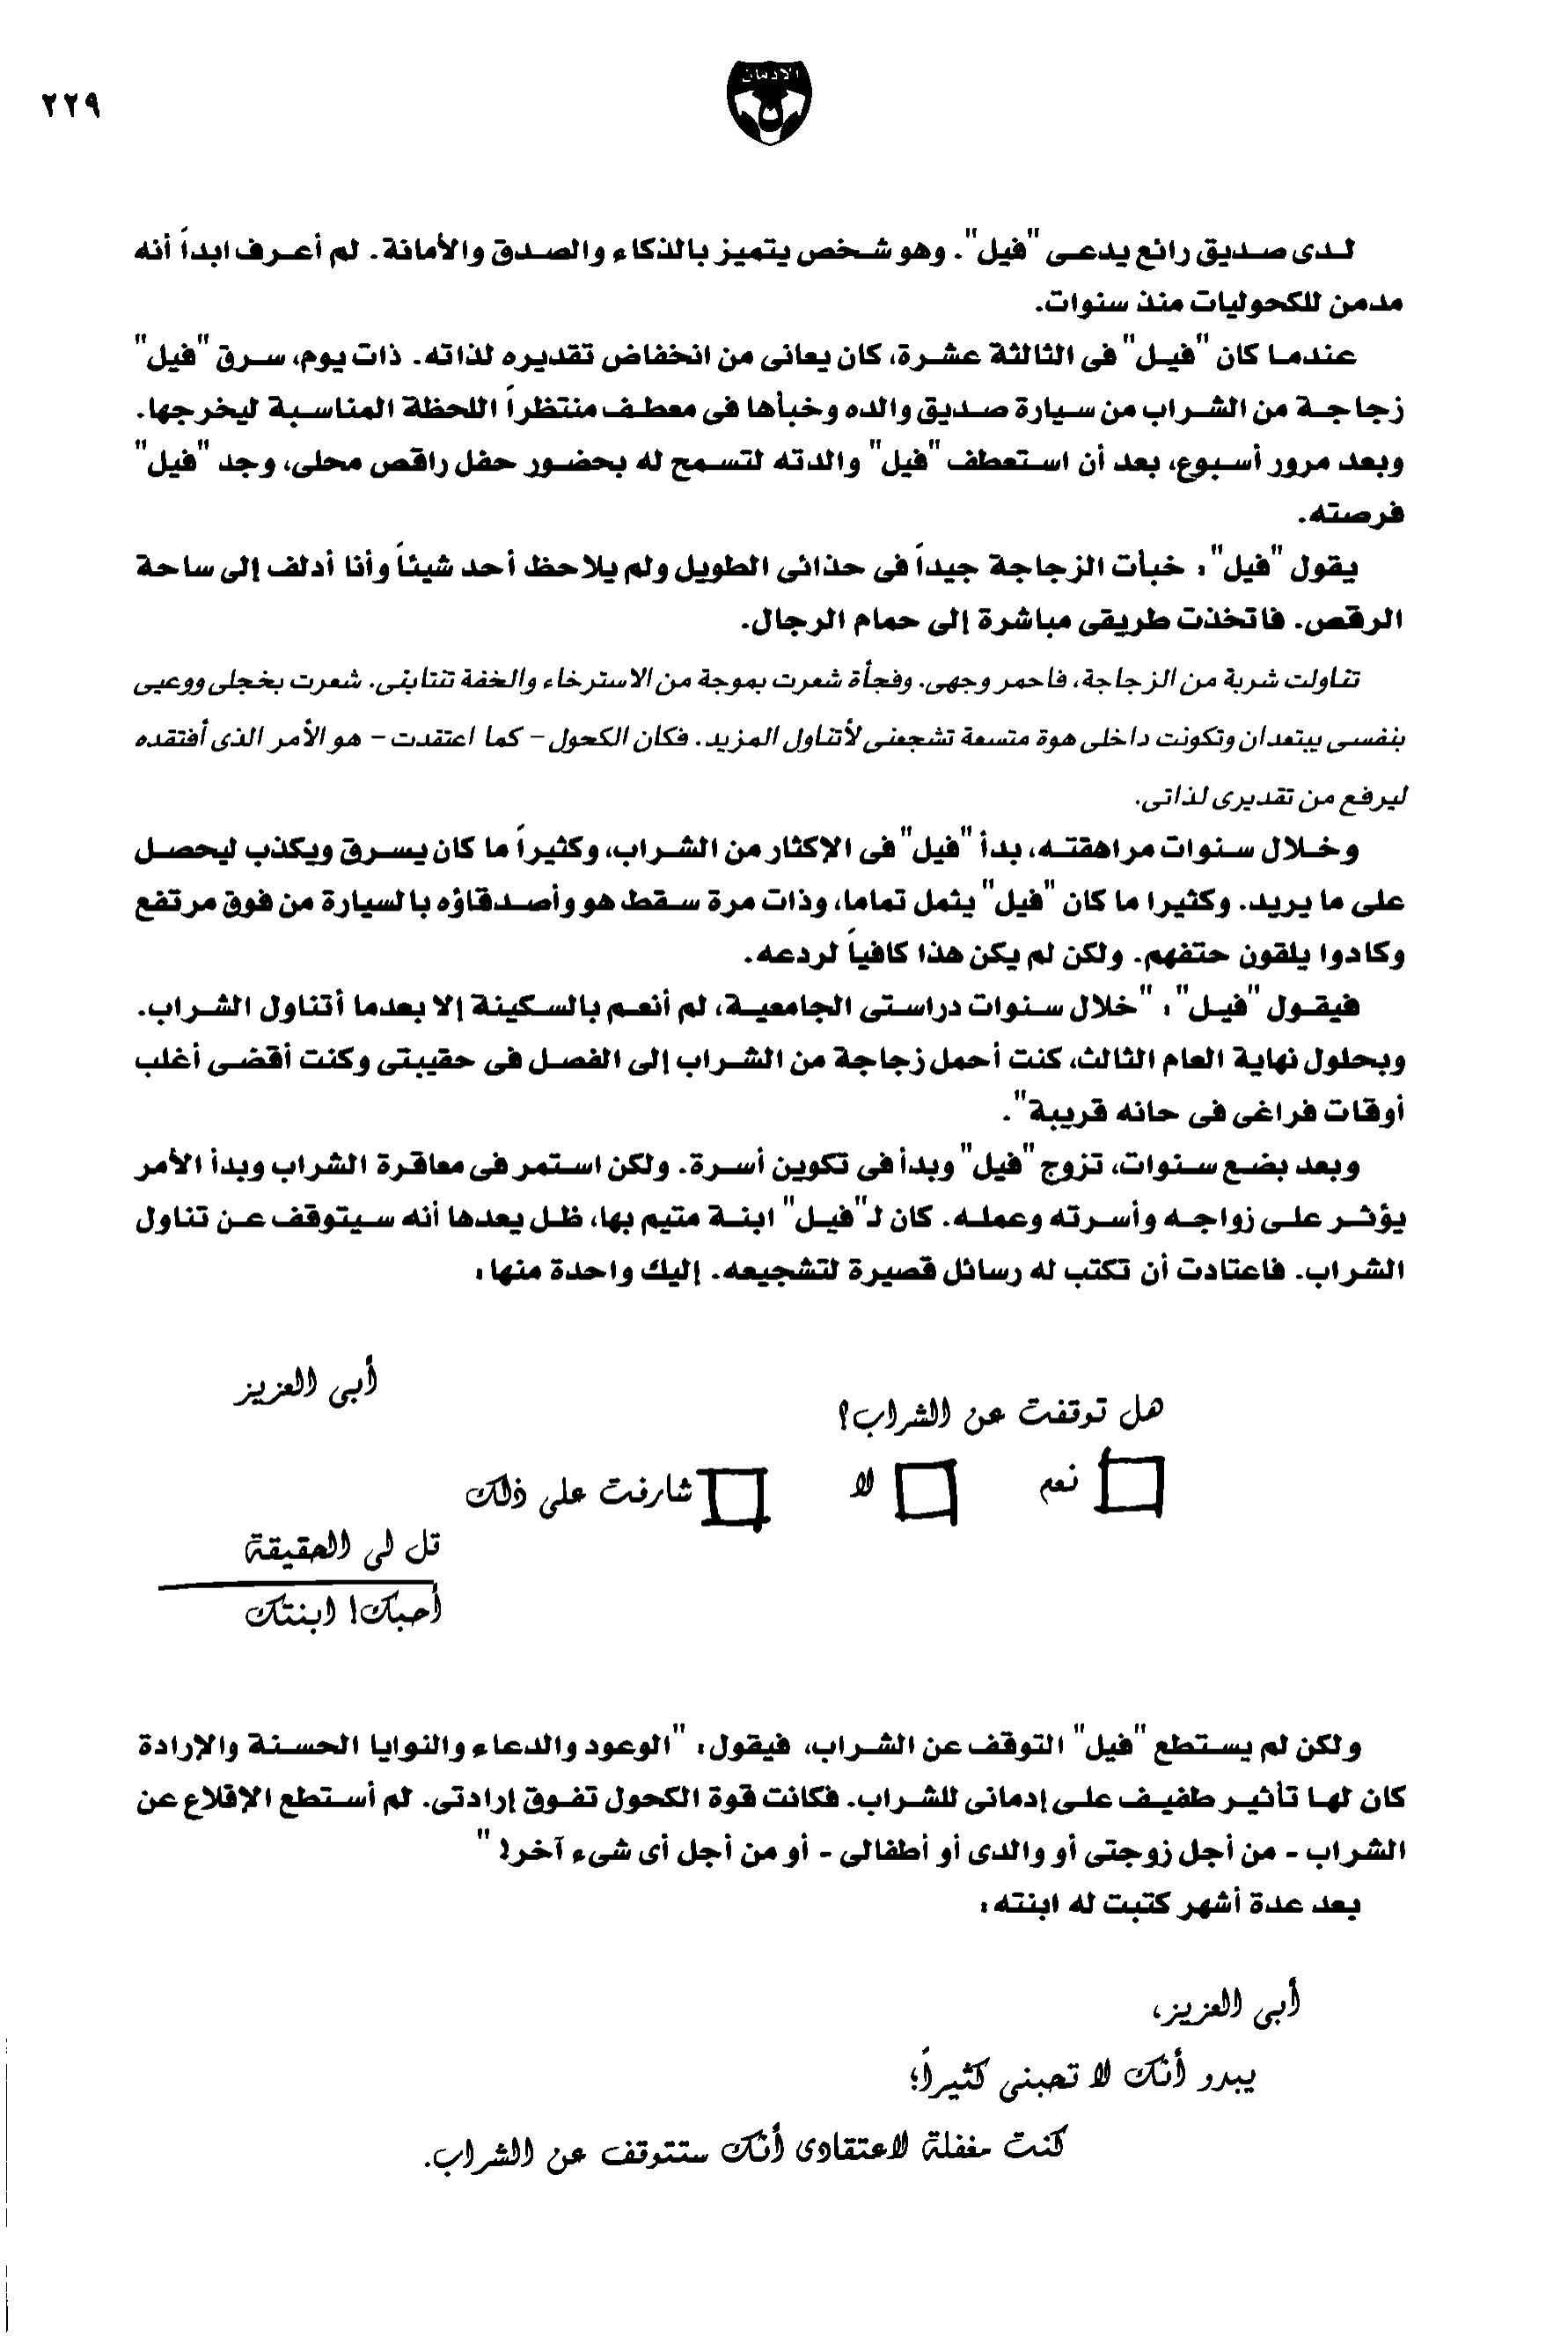 ٢٢٩
الإدمان
لدى صديق رائع يدعى "فيل". وهو شخص يتميز بالذكاء والصدق والأمانة. لم أعرف ابداً أنه
مدمن للكحوليات منذ سنوات.
عندما كان "فيل" فى الثالثة عشرة، كان يعانى من انخفاض تقديره لذاته. ذات يوم، سرق "فيل"
زجاجة من الشراب من سيارة صديق والده وخبأها فى معطف منتظراً اللحظة المناسبة ليخرجها.
وبعد مرور أسبوع، بعد أن استعطف "فيل" والدته لتسمح له بحضور حفل راقص محلى، وجد "فيل"
فرصته.
يقول "فيل": خبأت الزجاجة جيداً فى حذائى الطويل ولم يلاحظ أحد شيئاً وأنا أدلف إلى ساحة
الرقص. فاتخذت طريقى مباشرة إلى حمام الرجال.
تناولت شربة من الزجاجة، فاحمر وجهى. وفجأة شعرت بموجة من الاسترخاء والخفة تنتابنى. شعرت بخجلى ووعيى
بنفسى يبتعدان وتكونت داخلى هوة متسعة تشجعنى لأتناول المزيد. فكان الكحول - كما اعتقدت - هو الأمر الذى أفتقده
ليرفع من تقديرى لذاتى.
وخلال سنوات مراهقته، بدأ "فيل" فى الإكثار من الشراب، وكثيراً ما كان يسرق ويكذب ليحصل
على ما يريد. وكثيرا ما كان "فيل" يثمل تماما، وذات مرة سقط هو وأصدقاؤه بالسيارة من فوق مرتفع
وكادوا يلقون حتفهم. ولكن لم يكن هذا كافياً لردعه.
فيقول "فيل": "خلال سنوات دراستى الجامعية، لم أنعم بالسكينة إلا بعدما أتناول الشراب.
وبحلول نهاية العام الثالث، كنت أحمل زجاجة من الشراب إلى الفصل فى حقيبتى وكنت أقضى أغلب
أوقات فراغى فى حانه قريبة".
وبعد بضع سنوات، تزوج "فيل" وبدأ فى تكوين أسرة. ولكن استمر فى معاقرة الشراب وبدأ الأمر
يؤثر على زواجه وأسرته وعمله. كان لـ"فيل" ابنة متيم بها، ظل يعدها أنه سيتوقف عن تناول
الشراب. فاعتادت أن تكتب له رسائل قصيرة لتشجيعه. إليك واحدة منها:
أبى العزيز
هل توقفت عن الشراب؟
نعم لا شارفت على ذلك
قل لى الحقيقة
أحبك! ابنتك
ولكن لم يستطع "فيل" التوقف عن الشراب، فيقول: "الوعود والدعاء والنوايا الحسنة والإرادة
كان لها تأثير طفيف على إدمانى للشراب. فكانت قوة الكحول تفوق إرادتى. لم أستطع الإقلاع عن
الشراب - من أجل زوجتى أو والدى أو أطفالى - أو من أجل أى شىء آخر! "
بعد عدة أشهر كتبت له ابنته:
أبى العزيز،
يبدو أنك لا تحبنى كثيراً؛
كنت مغفلة لاعتقادى أنك ستتوقف عن الشراب.